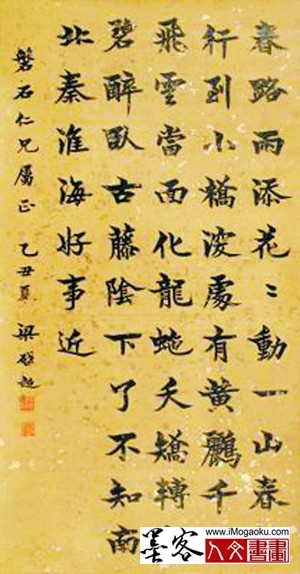 春路雨添花〻動一山春
行到小橋深處有黃鸝千
飛雲當面化龍蛇夭矯轉
碧醉臥古藤陰下了不知南
北秦淮海好事近
磐石仁兄屬正 乙丑夏 梁啟超
墨客
www.iMogaoku.com
人文書畫